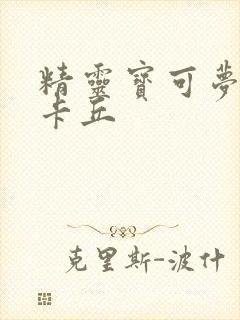 精靈寶可夢
卡丘
克里斯-波什